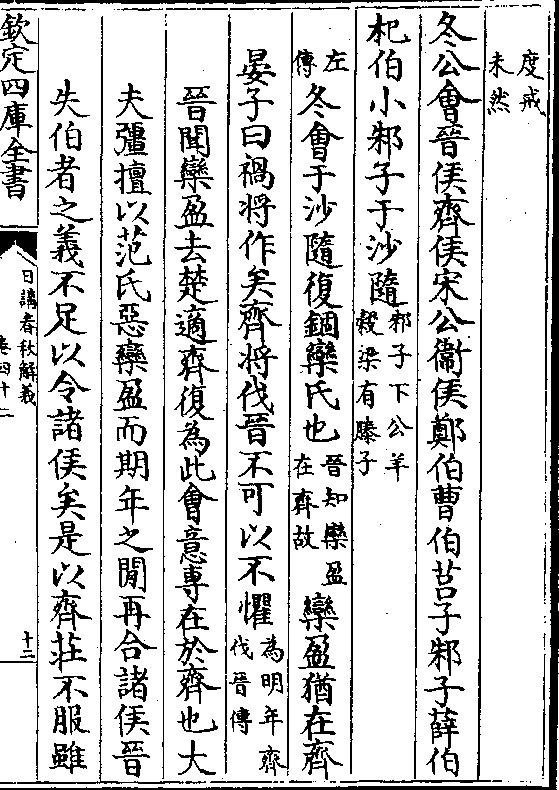 度戒
未然
冬公會晉侯齊侯宋公衞侯鄭伯曹伯莒子邾子薛伯
杞伯小邾子于沙隨邾子下公羊
穀梁有滕子
左
傳冬會于沙隨復錮欒氏也晉知欒盈
在齊故欒盈猶在齊
晏子曰禍將作矣齊將伐晉不可以不懼為明年齊
伐晉傳
晉聞欒盈去楚適齊復為此會意專在於齊也大
夫彊擅以范氏惡欒盈而期年之間再合諸侯晉
失伯者之義不足以令諸侯矣是以齊莊不服雖
欽定四庫全書
日講春秋解義
卷四十二
十二